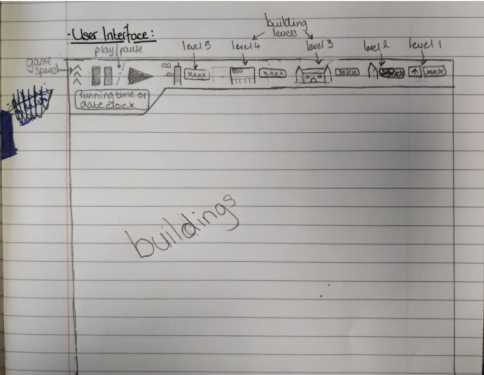 · User Interface:
building levels
play/pause
level 5
level 4
level 3
level 2
level 1
game speed
xxxx
xxxx
xxxx
xxxx
running time or date clock
buildings